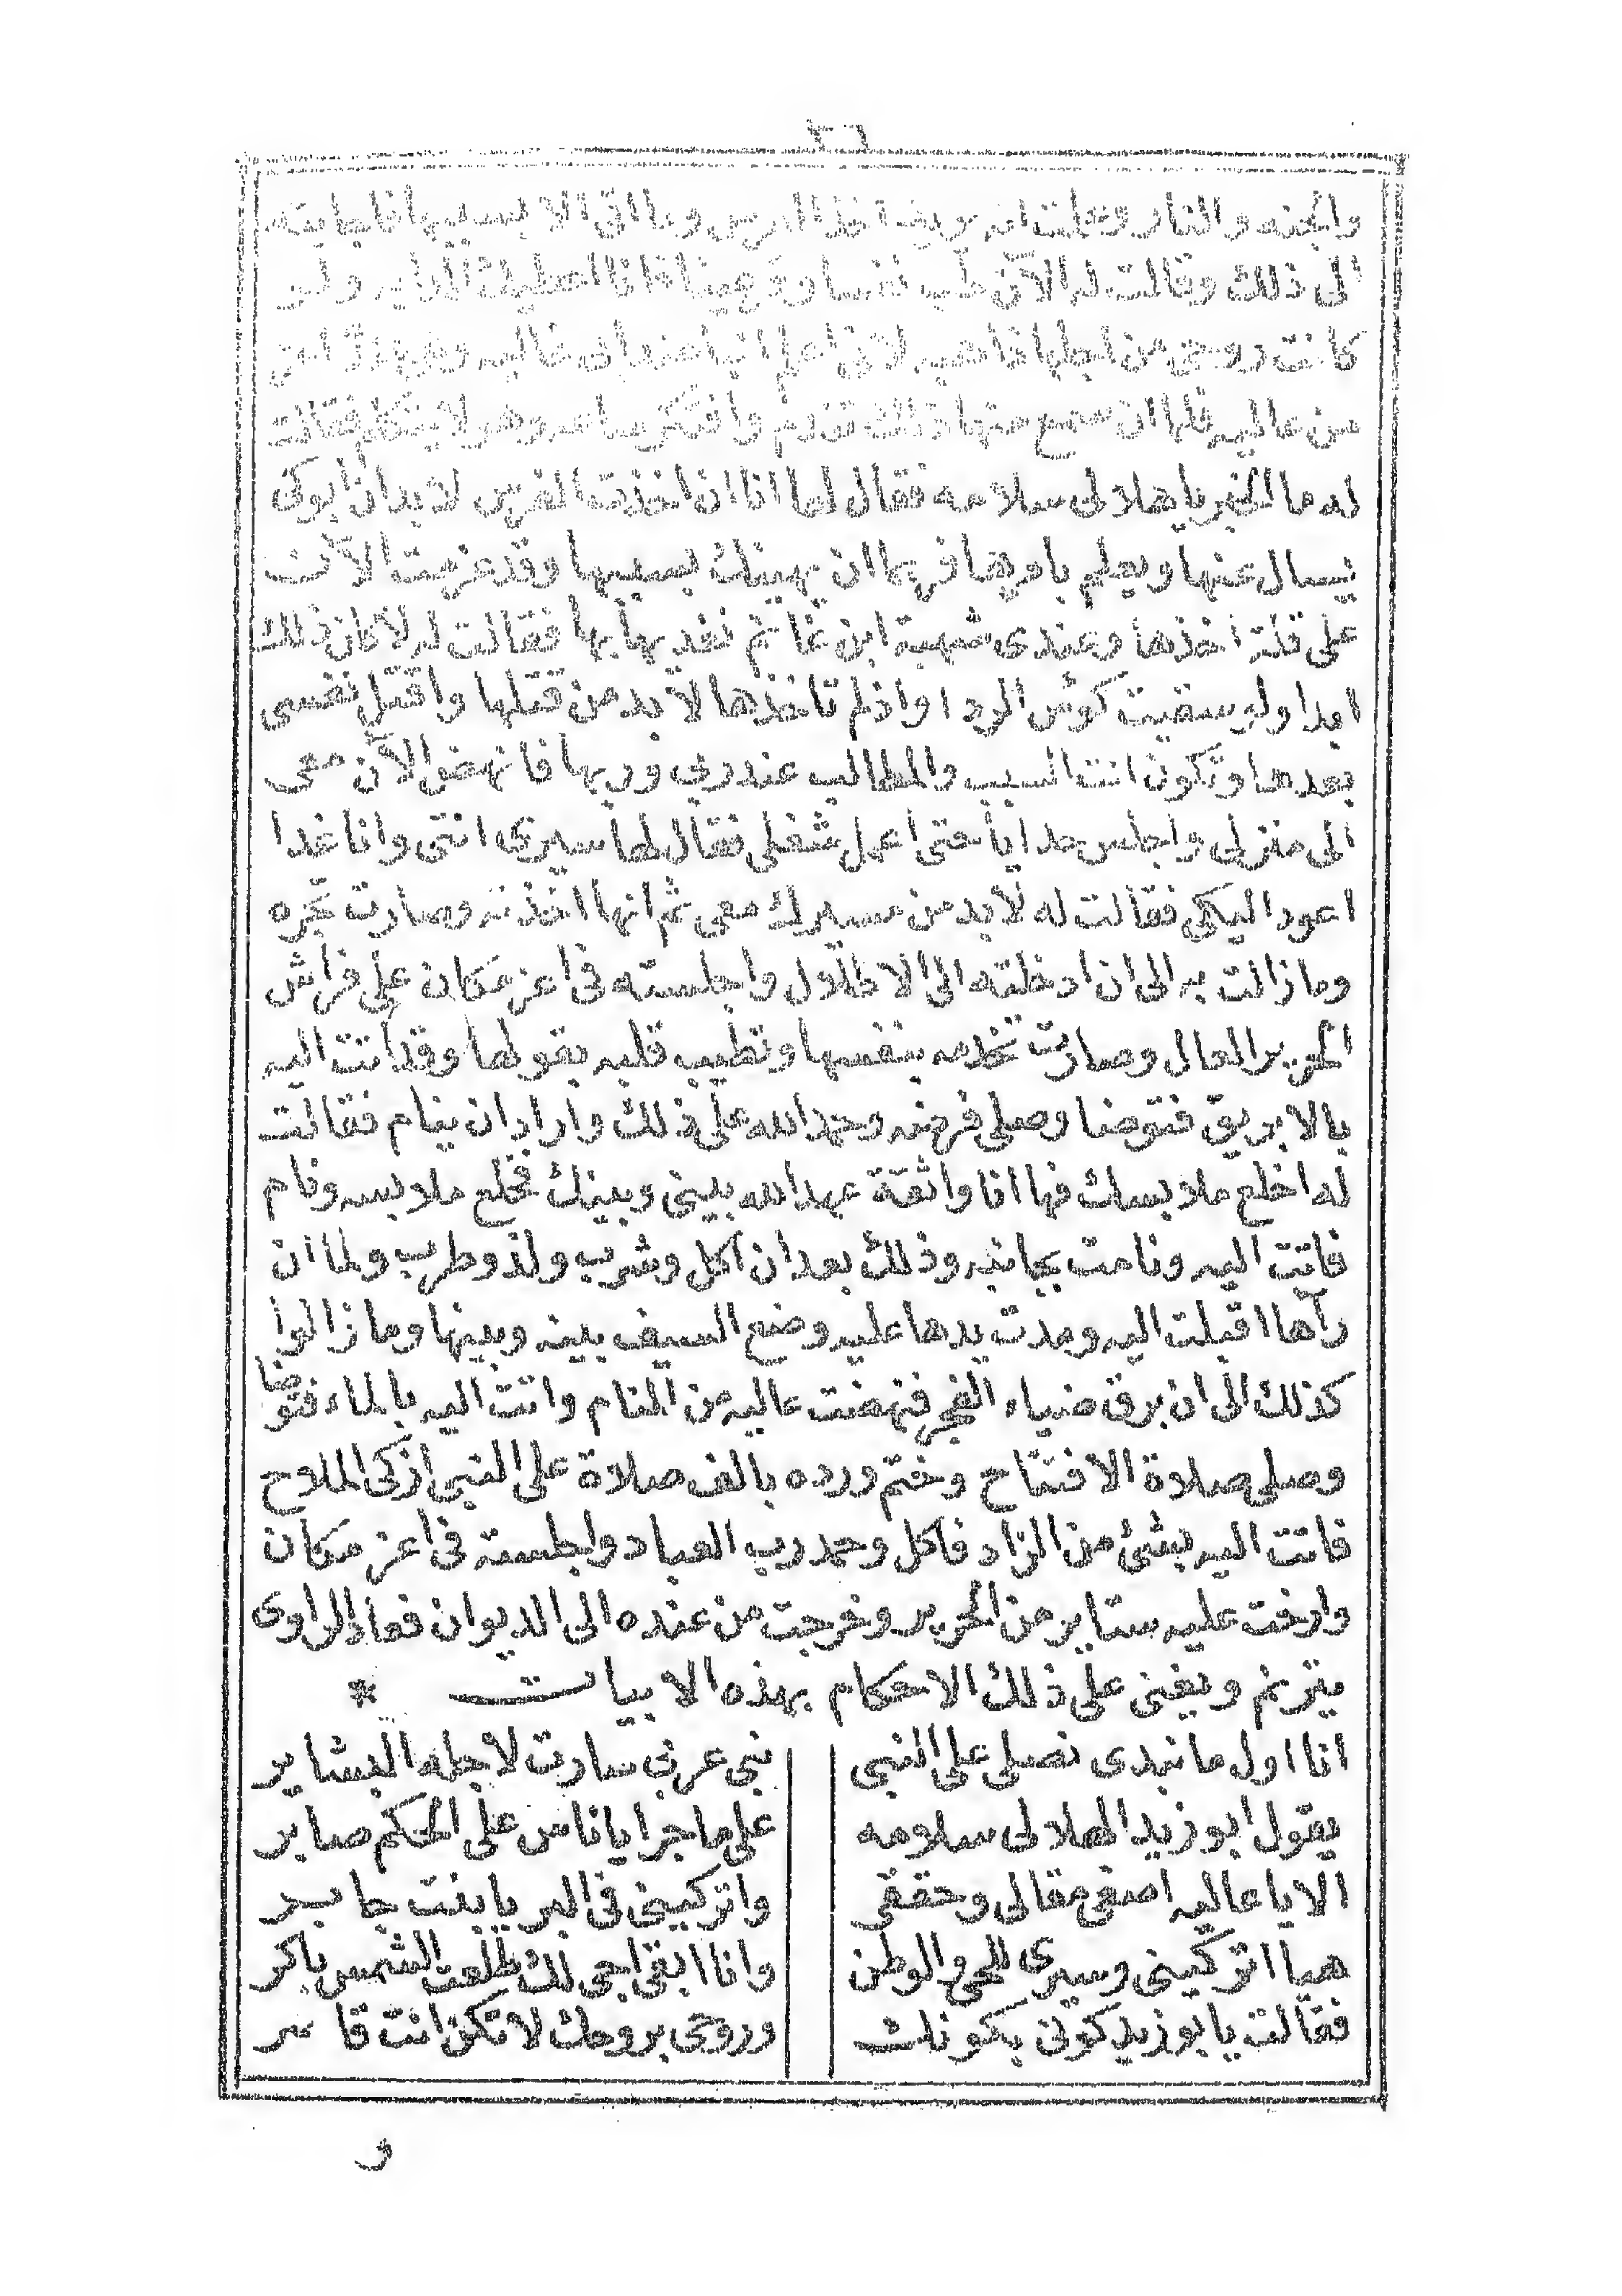 ٢٦
والجنه والنار وعلمت انه يريد اخذ الفرس وما اتى الا بسببها فاجابته
الى ذلك وقالت له الآن طب نفسا وقر عينا فانا اعطيك اياه ولو
كانت روحى من اجلها ذاهبه لانى اعلم انها عند ابى غاليه وهى اعز
من عاليه فلما ان سمع منها ذلك تندم وافتكر ساعه وهو لا يتكلم فقالت
له ما الخبر يا هلالى سلامه فقال لها انا ان اخذت الفرس لا بد ان ابوكى
يسال عنها ويعلم بامرها فربما ان يهينك بسببها وقد عزمت الآن
على قلة اخذها وعندى شهبة ابن غانم نفديها بها فقالت له لا كان ذلك
ابدا ولو سقيت كوس الردا واذ لم تاخذها لا بد من قتلها واقتل نفسى
بعدها وتكون انت السبب والمطالب عند ربى وربها فانهض الآن معى
الى منزلى واجلس حدايا حتى اعمل شغلى فقال لها سيرى انتى وانا غدا
اعود اليكى فقالت له لا بد من مسيرك معى ثم انها اخذته وصارت تجره
وما زالت به الى ان ادخلته الى الاطلال واجلسته فى اعز مكان على فراش
الحرير العال وصارت تخدمه بنفسها وتطيب قلبه بقولها وقد اتت اليه
بالابريق فتوضا وصلى فرضه وحمد الله على ذلك واراد ان ينام فقالت
له اخلع ملابسك فها انا واثقة عهد الله بينى وبينك فخلع ملابسه ونام
فاتت اليه ونامت بجانبه وذلك بعد ان اكل وشرب ولذ وطرب ولما ان
رآها اقبلت اليه ومدت يدها عليه وضع السيف بينه وبينها وما زالوا
كذلك الى ان برق ضياء الفجر فنهضت عاليه من المنام واتت اليه بالماء فتوضا
وصلى صلاة الافتتاح وختم ورده بالف صلاة على النبى ازكى الملاح
فاتت اليه بشئ من الزاد فاكل وحمد رب العباد واجلسته فى اعز مكان
وارخت عليه ستاير من الحرير وخرجت من عنده الى الديوان فعاد الراوى
يترنم ويغنى على ذلك الاحكام بهذه الابيات *
انا اول ما نبدى نصلى على النبى نبى عربى سارت لاجله البشاير
يقول ابو زيد الهلالى سلامه على ما جرا يا ناس على الحكم صابر
الا يا عاليه اصغى مقالى وحققى واتركينى فى البر يا بنت جابر
هيا اتركينى وسيرى للحى والوطن وانا ابقى اجى لك طلعت الشمس باكر
فقالت يا بو زيد كونى بكونك وروحى بروحك لا تكن انت قاسر
و